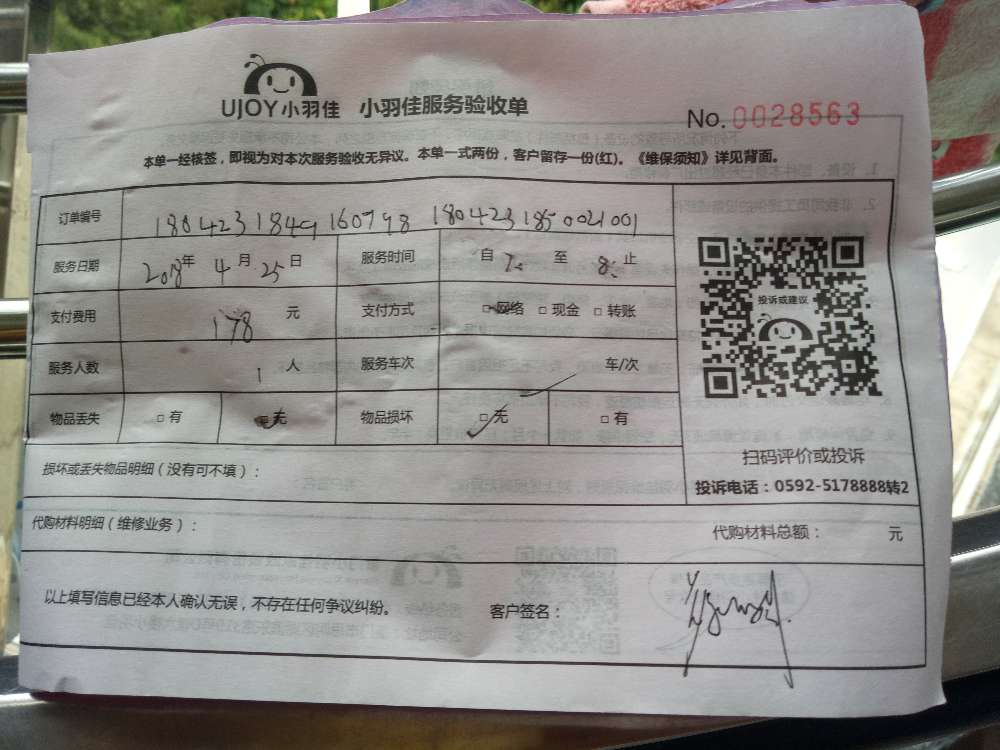 UJOY小羽佳 小羽佳服务验收单
No. 0028563
本单一经核签，即视为对本次服务验收无异议。本单一式两份，客户留存一份(红)。《维保须知》详见背面。
订单编号 1804231849160798 1804231850021001
服务日期 2018年 4月 25日 服务时间 自 7: 至 8: 止
支付费用 178 元 支付方式 □网络 □现金 □转账
投诉或建议
服务人数 1 人 服务车次 车/次
物品丢失 □有 □无 物品损坏 □无 □有
扫码评价或投诉
损坏或丢失物品明细（没有可不填）：
投诉电话：0592-5178888转2
代购材料明细（维修业务）： 代购材料总额： 元
以上填写信息已经本人确认无误，不存在任何争议纠纷。 客户签名：